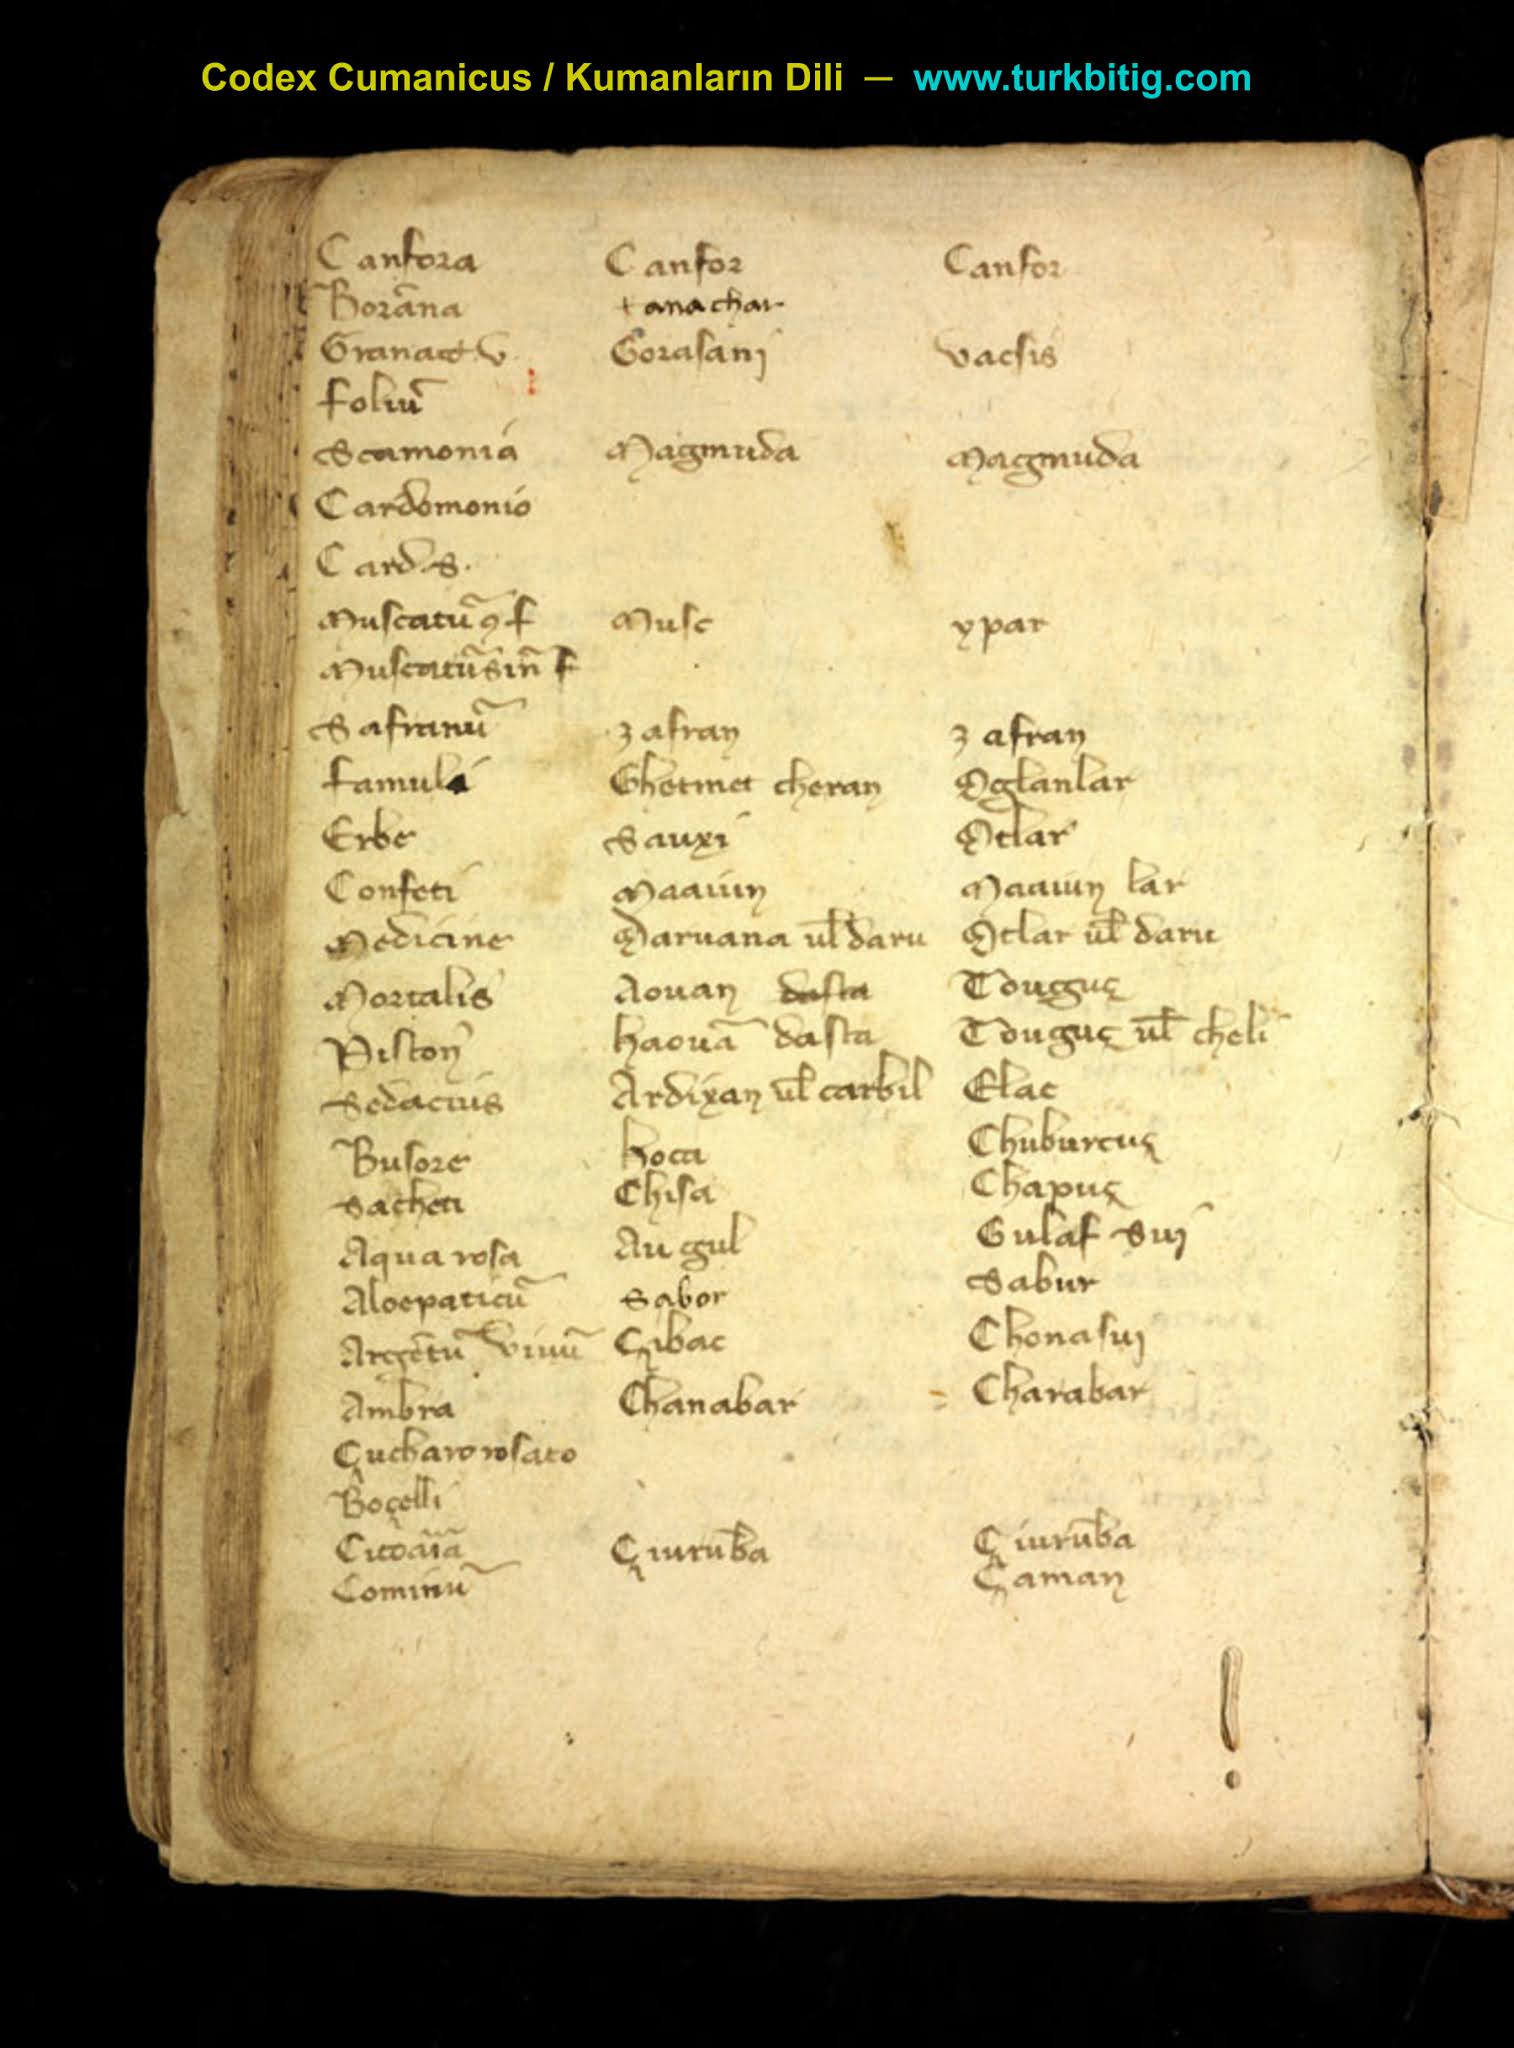 Codex Cumanicus / Kumanların Dili — www.turkbitig.com
Canfora Canfor Canfor
Borãna tanachar
Granat v. Gorasanj vacsis
foliũ
Scamonia Magmuda Magmuda
Cardomonio
Card. s.
Muscatũ 9 f Musc ypar
Muscatũ sin̄ f
Safranũ zafran zafran
famuli Ghetmet cheran Oglanlar
Erbe Sauxi Otlar
Confeti Maaiun Maaiun lar
Medicine Daruana ul̄ daru Otlar ul̄ daru
Mortalis Aouan dasta Touguç
Piston haouã dasta Touguç ul̄ cheli
Sedacius Ardixan ul̄ carbil Elac
Busore hoca Chuburcuç
Sacheti Chisa Chapuç
Aqua rosa Au gul Gulaf suj
Aloepaticũ Sabor Sabur
Argẽtũ viuũ Çibac Chonasuj
Ambra Chanabar Charabar
Çucharo rosato
Boçelli
Çiurub̄a Çiurub̄a
Cominũ Çaman